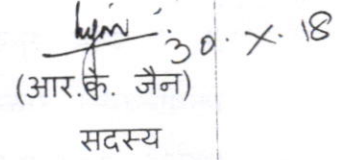 30.X.18
(आर.के. जैन)
सदस्य